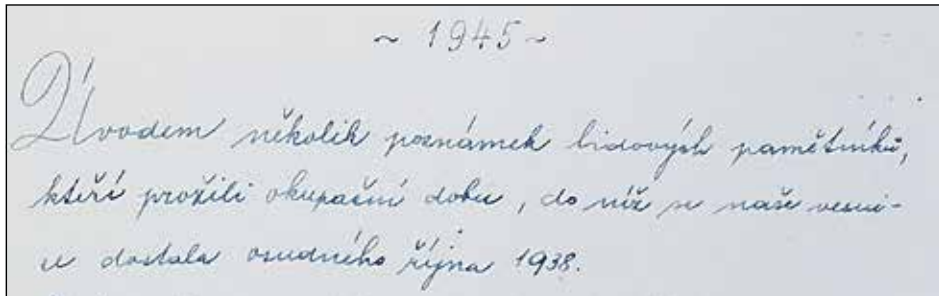 ~ 1945 ~
Úvodem několik poznámek lidových pamětníků,
kteří prožili okupační dobu, do níž se naše vesni-
ce dostala osudného října 1938.